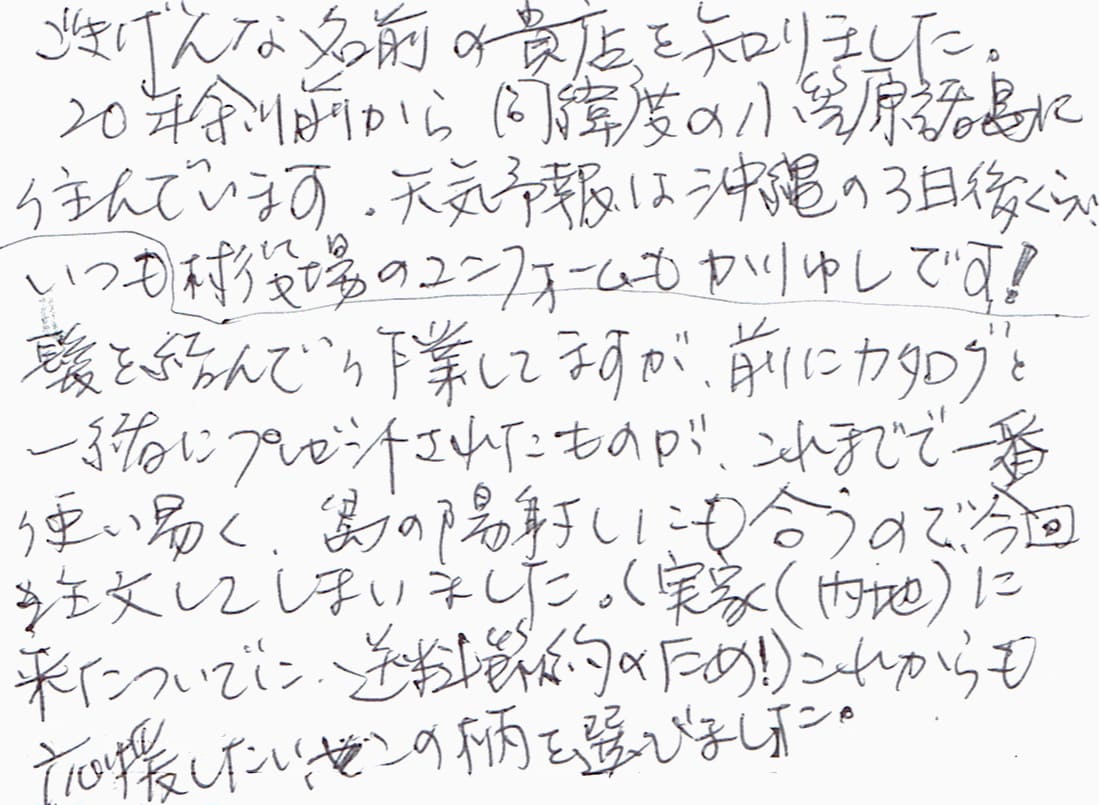 ごきげんな名前の貴店を知りました。
20年余り前から同緯度の小笠原諸島に
住んでいます。天気予報は沖縄の3日後くらい。
いつも村役場のユニフォームもかりゆしです!
髪を結んで作業してますが、前にカタログと
一緒にプレゼントされたものが、これまでで一番
使い易く、島の陽射しにも合うので、今回
注文してしまいました。(実家(内地)に
来たついでに、送料節約のため!)これからも
応援したい、この柄を選びました。